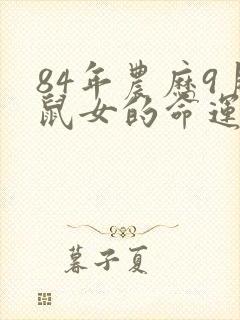 84年農曆9月
鼠女的命運
暮子夏